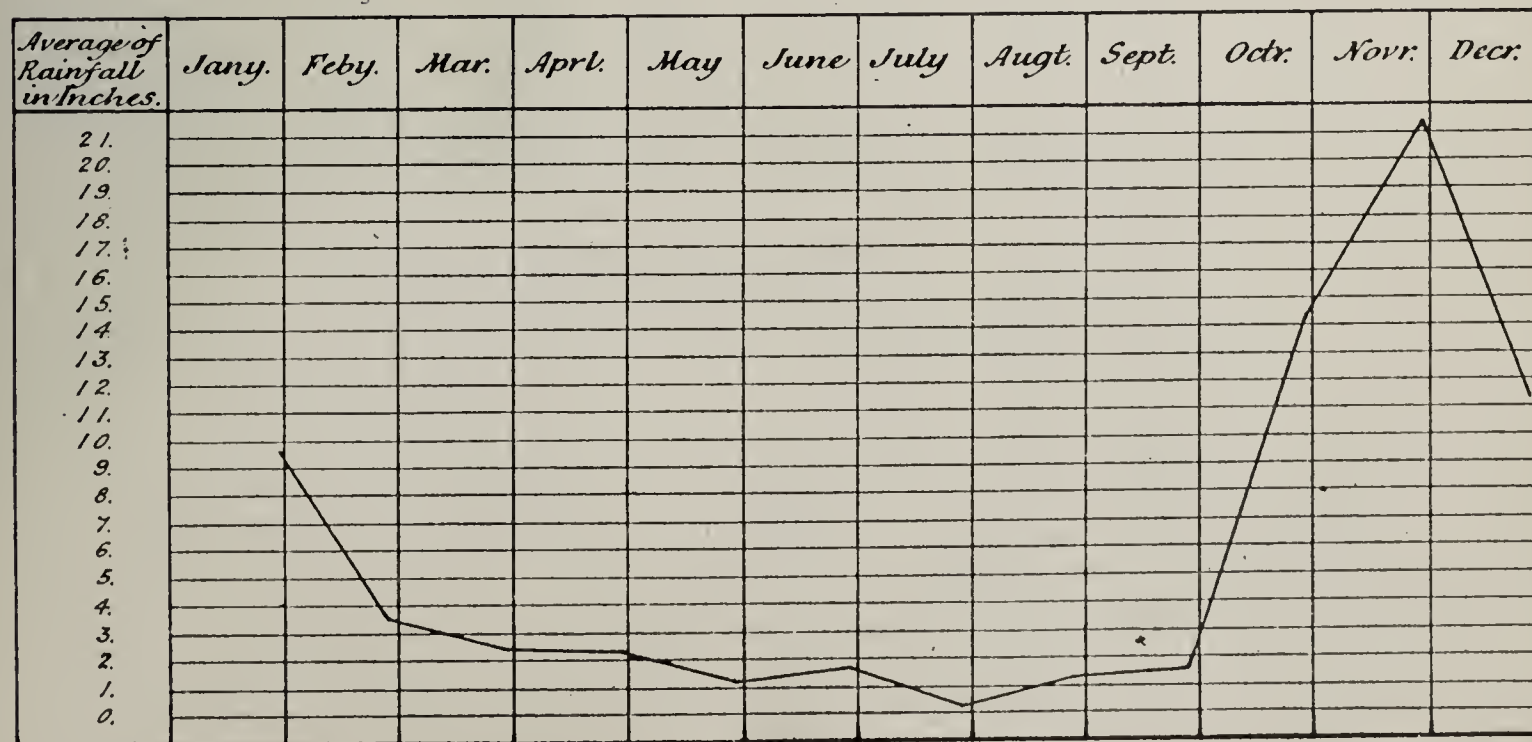 Average of
Rainfall
in Inches.
Jany. Feby. Mar. Aprl. May June July Augt. Sept. Octr. Novr. Decr.
21.
20.
19.
18.
17.
16.
15.
14.
13.
12.
11.
10.
9.
8.
7.
6.
5.
4.
3.
2.
1.
0.